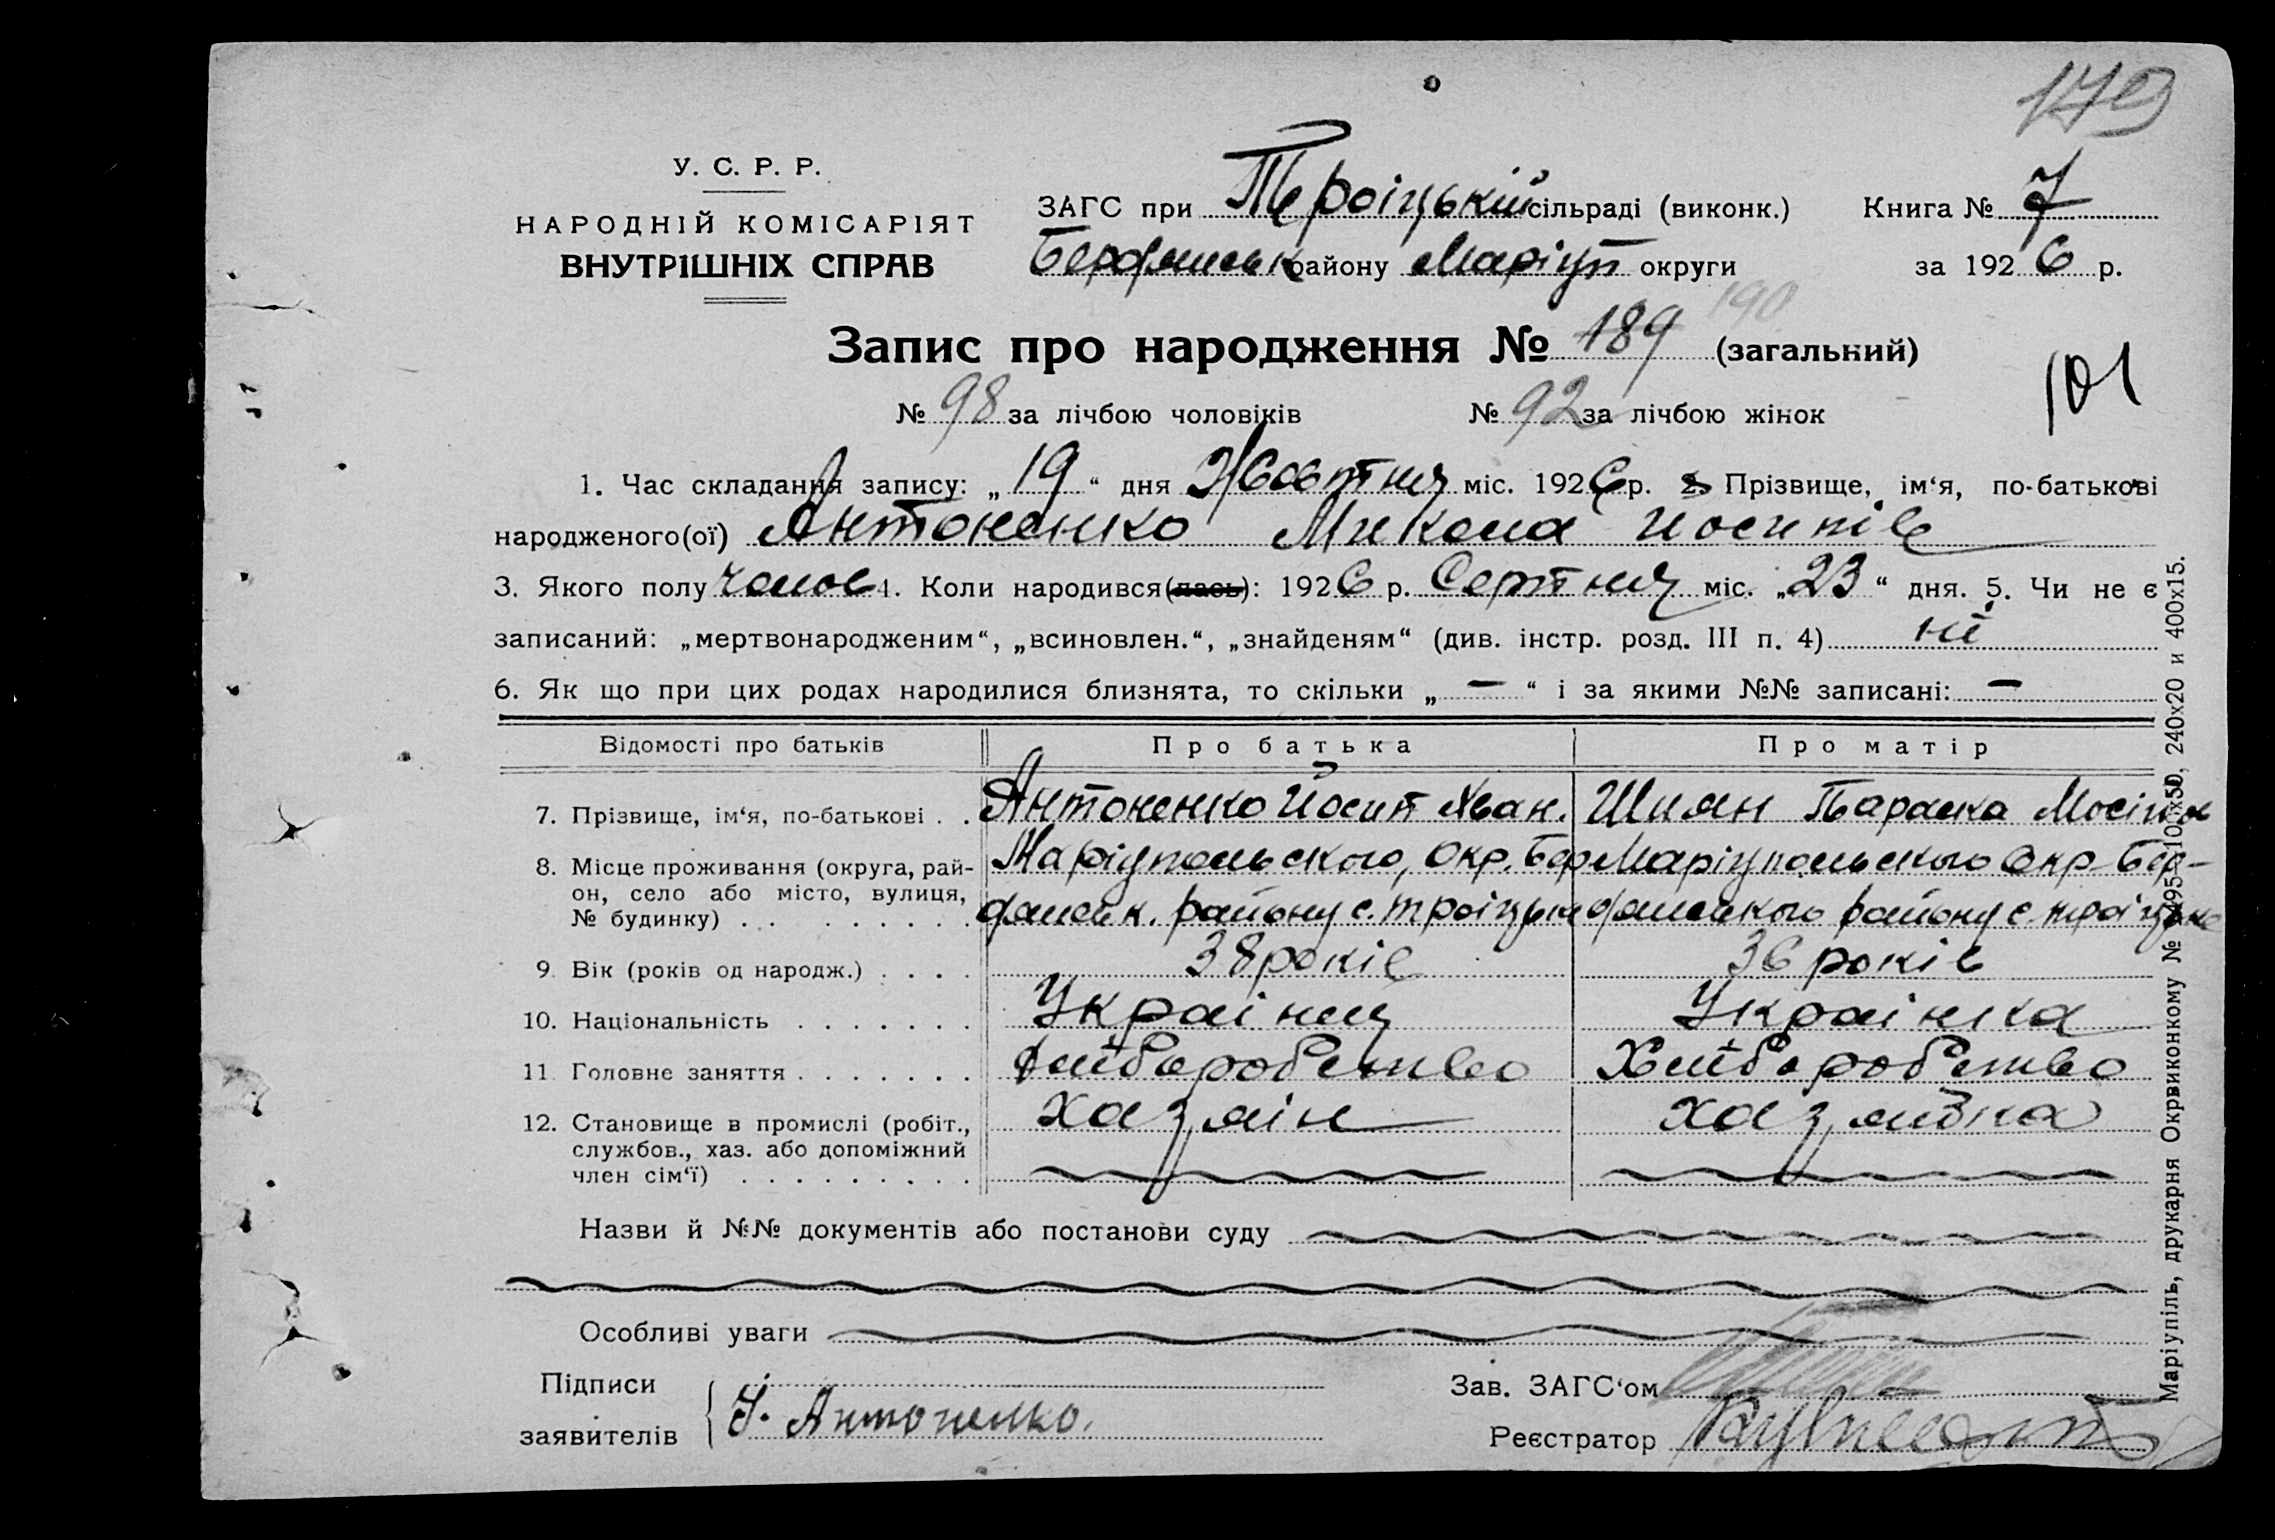 179
У. С. Р. Р.
НАРОДНІЙ КОМІСАРІЯТ
ВНУТРІШНІХ СПРАВ
ЗАГС при Троіцькій сільраді (виконк.) Книга № 7
Бердянськ району Маріуп округи за 1926 р.
190
Запис про народження № 189 (загальний)
101
№ 98 за лічбою чоловіків № 92 за лічбою жінок
1. Час складання запису: „19“ дня Жовтня міс. 1926 р. 2. Прізвище, ім‘я, по-батькові
народженого(ої) Антоненко Микола Йосипів
3. Якого полу чолов 4. Коли народився(лась): 1926 р. Серпня міс. „23“ дня. 5. Чи не є
записаний: „мертвонародженим“, „всиновлен.“, „знайденям“ (див. інстр. розд. III п. 4) ні
6. Як що при цих родах народилися близнята, то скільки „ — “ і за якими №№ записані: —
Відомості про батьків Про батька Про матір
7. Прізвище, ім‘я, по-батькові . . Антоненко Йосип Іван. Шиян Параска
8. Місце проживання (округа, рай- Маріупольского, Окр. Бер Маріупольского Окр Бер-
он, село або місто, вулиця,
№ будинку) . . . . . . . . дянськ. району с. Троіцьке дянського району с Троіцьке
9. Вік (років од народж.) . . . . 38 років 36 років
10. Національність . . . . . . . Украінец Украінка
11. Головне заняття . . . . . . . Хліборобство Хліборобство
12. Становище в промислі (робіт., хазяін хазяйка
службов., хаз. або допоміжний
член сім‘ї) . . . . . . . . .
Назви й №№ документів або постанови суду
Особливі уваги
Підписи Зав. ЗАГС‘ом
заявителів Й. Антоненко. Реєстратор
Маріупіль, друкарня Окрвиконкому № 240х20 и 400х15.